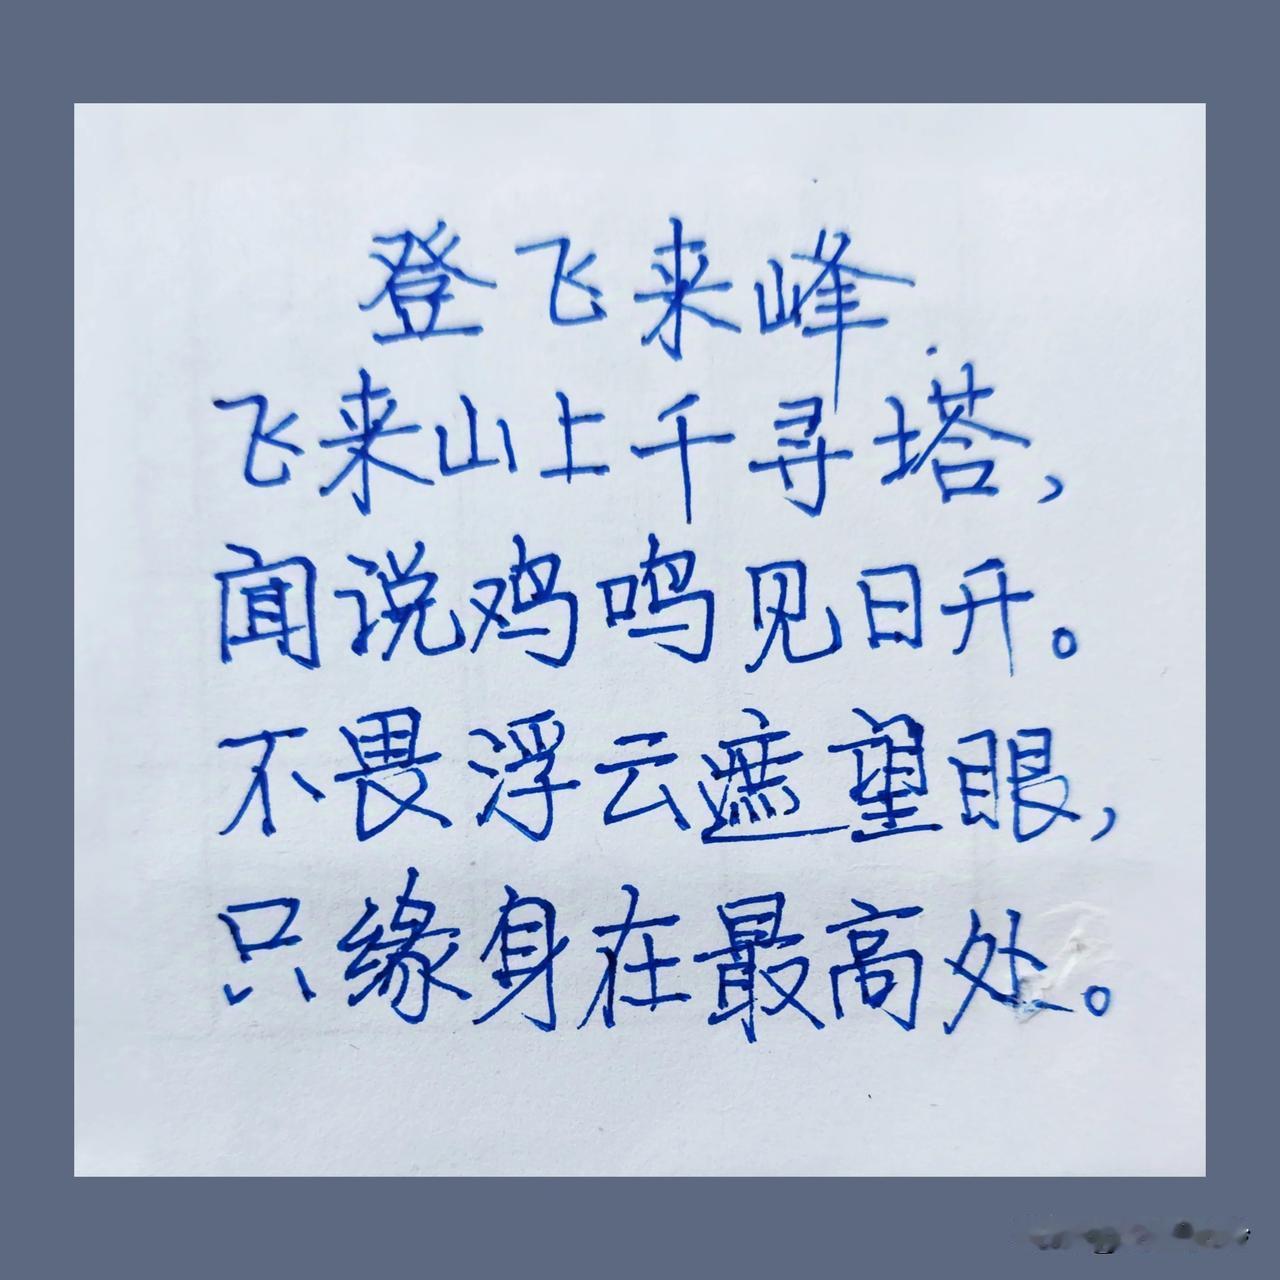 登飞来峰
飞来山上千寻塔，
闻说鸡鸣见日升。
不畏浮云遮望眼，
只缘身在最高处。